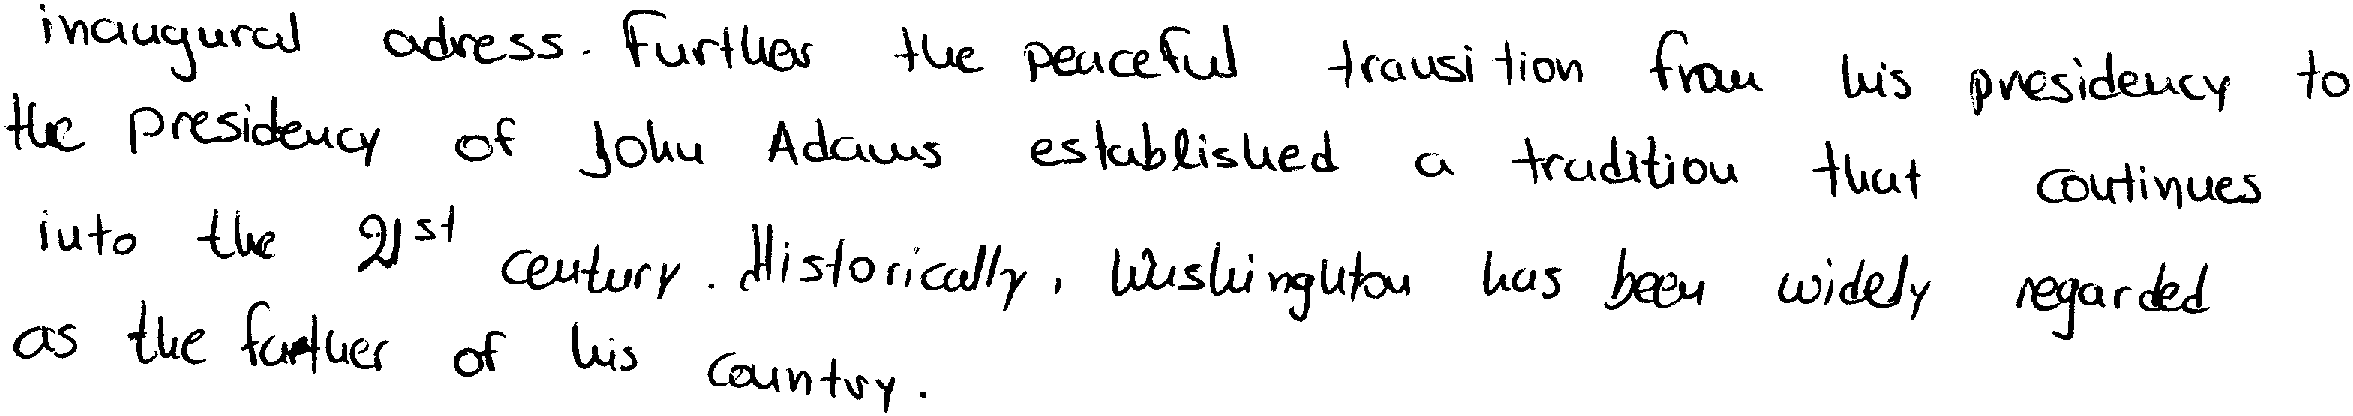 inaugural adress. Further the peaceful transition from his presidency to
the presidency of John Adams established a tradition that continues
into the 21st century. Historically, Washinghton has been widely regarded
as the farther of his country.